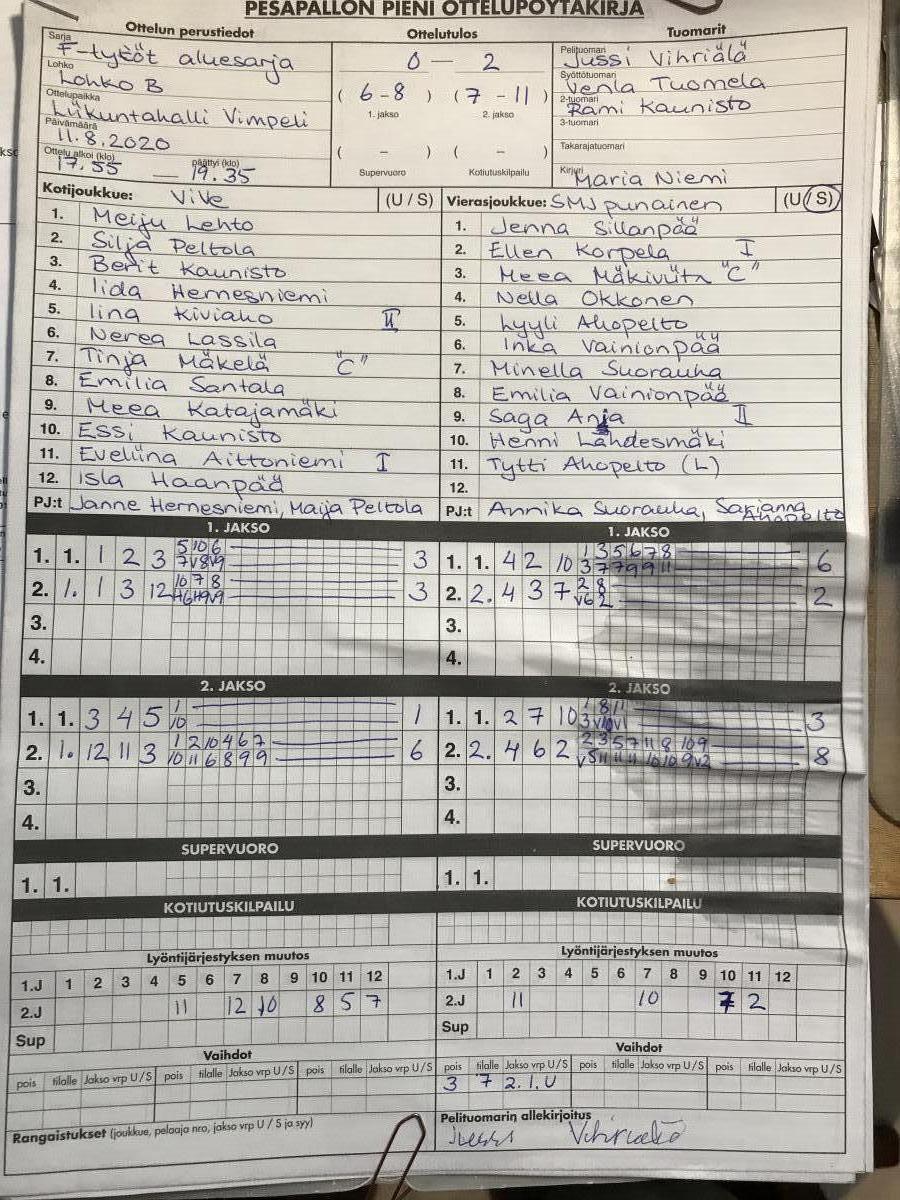 PESÄPALLON PIENI OTTELUPÖYTÄKIRJA
Ottelun perustiedot
Sarja
F-tytöt aluesarja
Lohko
Lohko B
Ottelupaikka
Liikuntahalli Vimpeli
Päivämäärä
11.8.2020
Ottelu alkoi (klo) päättyi (klo)
17.55 — 19.35
Ottelutulos
0 — 2
( 6 - 8 ) ( 7 - 11 )
1. jakso 2. jakso
( - ) ( - )
Supervuoro Kotiutuskilpailu
Tuomarit
Pelituomari
Jussi Vihriälä
Syöttötuomari
Venla Tuomela
2-tuomari
Rami Kaunisto
3-tuomari
Takarajatuomari
Kirjuri
Maria Niemi
Kotijoukkue: ViVe (U / S)
1. Meiju Lehto
2. Silja Peltola
3. Berit Kaunisto
4. Iida Hernesniemi
5. Iina Kiviaho II
6. Nerea Lassila
7. Tinja Mäkelä "C"
8. Emilia Santala
9. Meea Katajamäki
10. Essi Kaunisto
11. Eveliina Aittoniemi I
12. Isla Haanpää
PJ:t Janne Hernesniemi, Maija Peltola
Vierasjoukkue: SMJ punainen (U / S)
1. Jenna Sillanpää
2. Ellen Korpela I
3. Meea Mäkiviita "C"
4. Nella Okkonen
5. Lyyli Ahopelto
6. Inka Vainionpää
7. Minella Suorauha
8. Emilia Vainionpää
9. Saga Anja II
10. Henni Lähdesmäki
11. Tytti Ahopelto (L)
12.
PJ:t Annika Suorauha, Sarianna Ahopelto
1. JAKSO
1. 1. 1 2 3 5 10 6 3
7 V8 V9
2. 1. 1 3 12 10 7 8 3
3.
4.
1. JAKSO
1. 1. 4 2 10 1 3 5 6 7 8 6
3 7 7 9 9 11
2. 2. 4 3 7 2 8 2
V6 2
3.
4.
2. JAKSO
1. 1. 3 4 5 1 1
10
2. 1. 12 11 3 1 2 10 4 6 7 6
10 11 6 8 9 9
3.
4.
2. JAKSO
1. 1. 2 7 10 1 8 11 3
3 V10 V1
2. 2. 4 6 2 2 3 5 7 11 8 10 9 8
V5 11 11 11 10 10 9 V2
3.
4.
SUPERVUORO
1. 1.
SUPERVUORO
1. 1.
KOTIUTUSKILPAILU
KOTIUTUSKILPAILU
Lyöntijärjestyksen muutos
1.J 1 2 3 4 5 6 7 8 9 10 11 12
2.J 11 12 10 8 5 7
Sup
Lyöntijärjestyksen muutos
1.J 1 2 3 4 5 6 7 8 9 10 11 12
2.J 11 10 7 2
Sup
Vaihdot
pois tilalle Jakso vrp U / S pois tilalle Jakso vrp U / S pois tilalle Jakso vrp U / S
Vaihdot
pois tilalle Jakso vrp U / S pois tilalle Jakso vrp U / S pois tilalle Jakso vrp U / S
3 7 2. 1. U
Rangaistukset (joukkue, pelaaja nro, jakso vrp U / S ja syy)
Pelituomarin allekirjoitus
Jussi Vihriälä